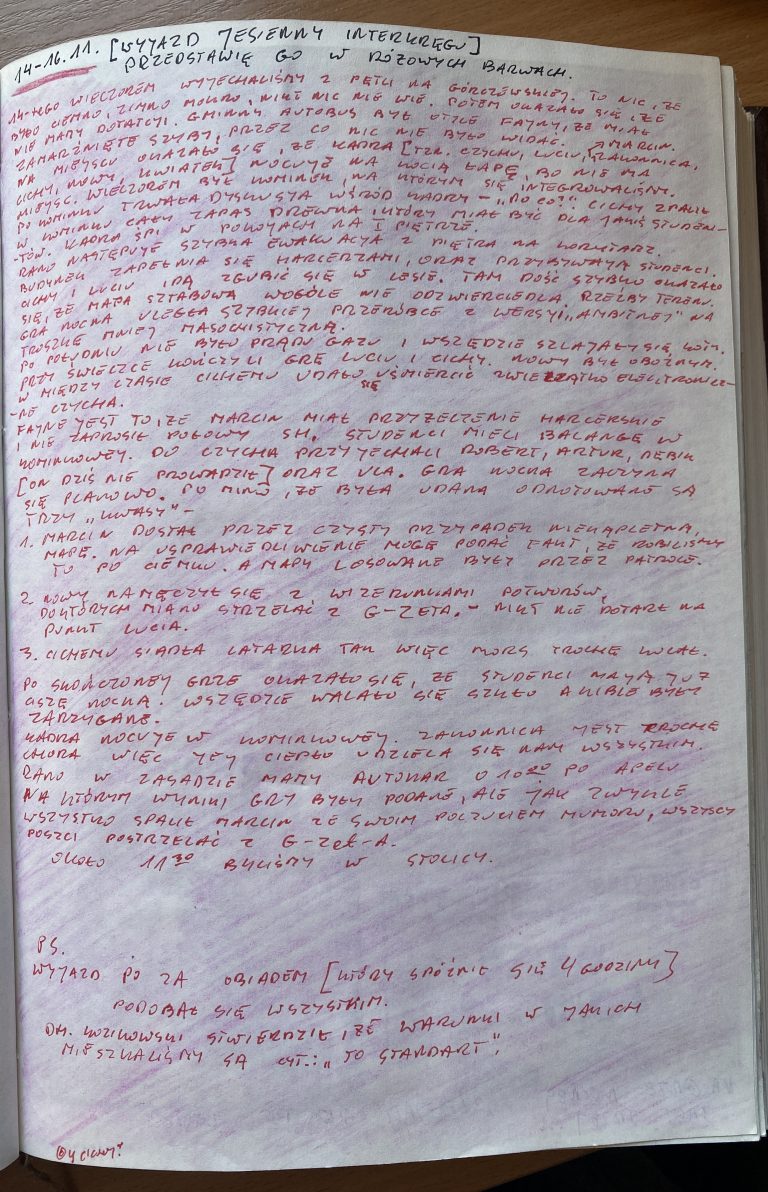 14-16.11. [WYJAZD JESIENNY INTERKRĘGU]
PRZEDSTAWIĘ GO W RÓŻOWYCH BARWACH.
14-TEGO WIECZOREM WYJECHALIŚMY Z PĘTLI NA GÓRCZEWSKIEJ. TO NIC, ŻE
BYŁO CIEMNO, ZIMNO MOKRO, NIKT NIC NIE WIE. POTEM OKAZAŁO SIĘ, ŻE
NIE MAMY DOTACJI. GMINNY AUTOBUS BYŁ OTYLE FAJNY, ŻE MIAŁ
ZAMARZNIĘTE SZYBY, PRZEZ CO NIC NIE BYŁO WIDAĆ. MARCIN.
NA MIEJSCU OKAZAŁO SIĘ, ŻE KADRA [TZN. CZYCHU, LUCIU, ZAKONNICA,
CICHY, NOWY, KWIATEK] NOCUJE NA KOCIĄ ŁAPĘ, BO NIE MA
MIEJSC. WIECZOREM BYŁ KOMINEK, NA KTÓRYM SIĘ INTEGROWALIŚMY.
PO KOMINKU TRWAŁA DYSKUSJA WŚRÓD KADRY - "PO CO?". CICHY ZPALIŁ
W KOMINKU CAŁY ZAPAS DREWNA, KTÓRY MIAŁ BYĆ DLA JAKIŚ STUDEN-
-TÓW. KADRA ŚPI W POKOJACH NA I PIĘTRZE.
RANO NASTĘPUJE SZYBKA EWAKUACJA Z PIĘTRA NA KORYTARZ.
BUDYNEK ZAPEŁNIA SIĘ HARCERZAMI, ORAZ PRZYBYWAJĄ STUDENCI.
CICHY I LUCIU IDĄ ZGUBIĆ SIĘ W LESIE. TAM DOŚĆ SZYBKO OKAZAŁO
SIĘ, ŻE MAPA SZTABOWA WOGÓLE NIE ODZWIERCIEDLA RZEŹBY TERENU.
GRA NOCNA ULEGŁA SZYBKIEJ PRZERÓBCE Z WERSJI "AMBITNEJ" NA
TROSZKE MNIEJ MASOCHISTYCZNĄ.
PO POŁUDNIU NIE BYŁO PRĄDU GAZU I WSZĘDZIE SZLAJAŁY SIĘ KOTY.
PRZY ŚWIECZCE KOŃCZYLI GRĘ LUCIU I CICHY. NOWY BYŁ OBOŹNYM.
W MIĘDZY CZASIE CICHEMU UDAŁO SIĘ UŚMIERCIĆ ZWIEŻĄTKO ELECTRONICZ-
-NE CZYCHA.
FAJNE JEST TO, ŻE MARCIN MIAŁ PRZYŻECZENIE HARCERSKIE
I NIE ZAPROSIŁ POŁOWY SH. STUDENCI MIELI BALANGĘ W
KOMINKOWEJ. DO CZYCHA PRZYJECHALI ROBERT, ARTUR, REBIK
[ON DZIŚ NIE PROWADZIŁ] ORAZ ULA. GRA NOCNA ZACZYNA
SIĘ PLANOWO. PO MIMO, ŻE BYŁA UDANA ODNOTOWANO SĄ
TRZY "UWASY" -
1. MARCIN DOSTAŁ PRZEZ CZYSTY PRZYPADEK NIEKĄPLETNĄ
MAPĘ. NA USPRAWIEDLIWIENIE MOGĘ PODAĆ FAKT, ŻE ROBILIŚMY
TO PO CIEMKU. A MAPY LOSOWANE BYŁY PRZEZ PATROLE.
2. NOWY NAMĘCZYŁ SIĘ Z WIZERUNKAMI POTWORÓW,
DO KTÓRYCH MIANO STRZELAĆ Z G-ZETA. - NIKT NIE DOTARŁ NA
PUNKT LUCIA.
3. CICHEMU SIADŁA LATARKA TAK WIĘC MORS TROCHĘ KULAŁ.
PO SKOŃCZONEJ GRZE OKAZAŁO SIĘ, ŻE STUDENCI MAJĄ JUŻ
CISZĘ NOCNĄ. WSZĘDZIE WALAŁO SIĘ SZKŁO A KIBLE BYŁY
ZARZYGANE.
KADRA NOCUJE W KOMINKOWEJ. ZAKONNICA JEST TROCHĘ
CHORA WIĘC JEJ CIEPŁO UDZIELA SIĘ NAM WSZYSTKIM.
RANO W ZASADZIE MAMY AUTOKAR O 10²⁰ PO APELU
NA KTÓRYM WYNIKI GRY BYŁY PODANE, ALE JAK ZWYKLE
WSZYSTKO SPALIŁ MARCIN ZE SWOIM POCZUCIEM HUMORU, WSZYSCY
POSZLI POSTRZELAĆ Z G-ZET-A.
OKOŁO 11³⁰ BYLIŚMY W STOLICY.
PS.
WYJAZD PO ZA OBIADEM [KTÓRY SPÓŹNIŁ SIĘ 4 GODZINY]
PODOBAŁ SIĘ WSZYSTKIM.
DH. KOZIKOWSKI STWIERDZIŁ, ŻE WARUNKI W JAKICH
MIESZKALIŚMY SĄ CYT.: "TO STANDART".
By CICHY!